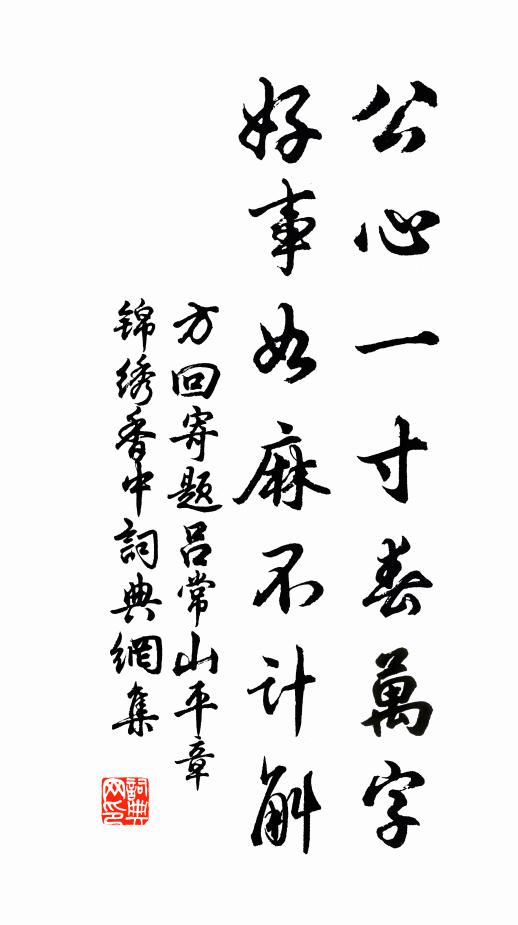 公心一寸春萬字
好事如麻不计斛
方回寄题吕常山平章
锦绣香中詞典網集
詞典网印